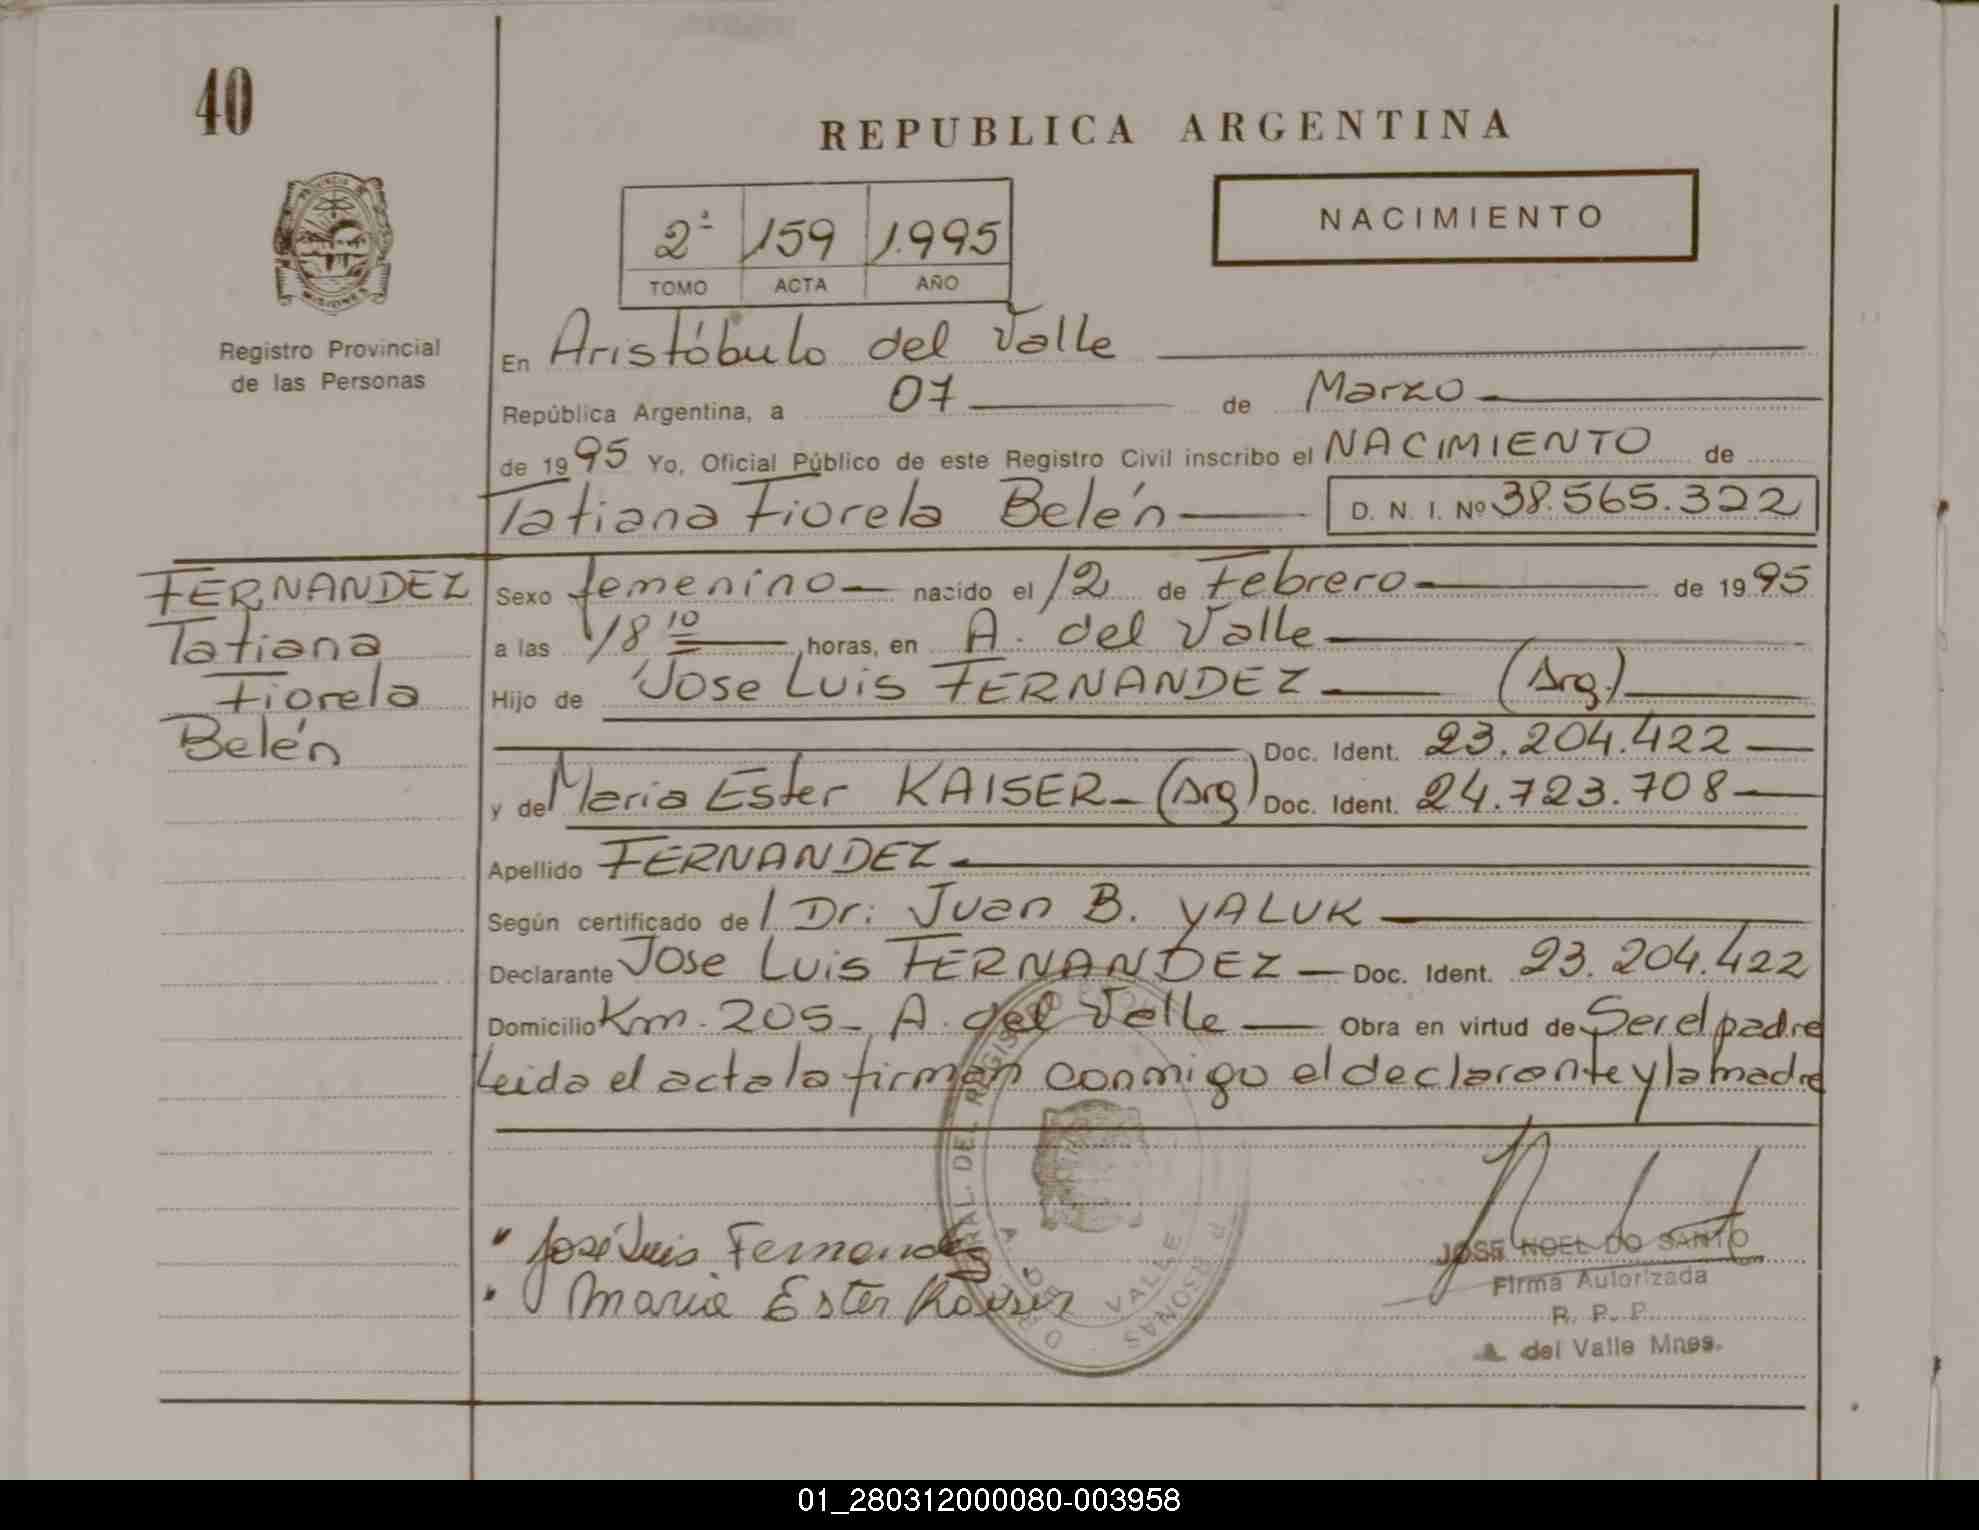 40
REPUBLICA ARGENTINA
PROVINCIA DE
MISIONES
2ª 159 1.995
TOMO ACTA AÑO
NACIMIENTO
Registro Provincial
de las Personas
En Aristóbulo del Valle
República Argentina, a 07 de Marzo
de 1995 Yo, Oficial Público de este Registro Civil inscribo el NACIMIENTO de
Tatiana Fiorela Belén D. N. I. Nº 38.565.322
FERNANDEZ
Tatiana
Fiorela
Belén
Sexo femenino nacido el 12 de Febrero de 1995
a las 18 10 horas, en A. del Valle
Hijo de Jose Luis FERNANDEZ (Arg.)
Doc. Ident. 23.204.422
y de Maria Ester KAISER (Arg) Doc. Ident. 24.723.708
Apellido FERNANDEZ
Según certificado de / Dr: Juan B. YALUK
Declarante Jose Luis FERNANDEZ Doc. Ident. 23.204.422
Domicilio Km. 205 A. del Valle Obra en virtud de Ser el padre
Leida el acta la firman conmigo el declarante y la madre
José Luis Fernandez
Maria Ester Kaiser
JOSE NOEL DO SANTO
Firma Autorizada
R. P. P.
A. del Valle Mnes.
01_280312000080-003958